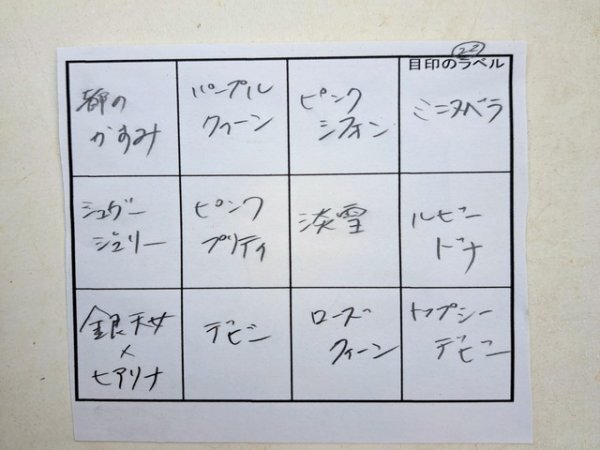 22
目印のラベル
都の
かすみ
パープル
クィーン
ピンク
シフォン
ミニヌベラ
シュガー
ジュリー
ピンク
プリティ
淡雪
ルビー
ドナ
銀天女
×
ヒアリナ
デビー
ローズ
クィーン
トプシー
デビー